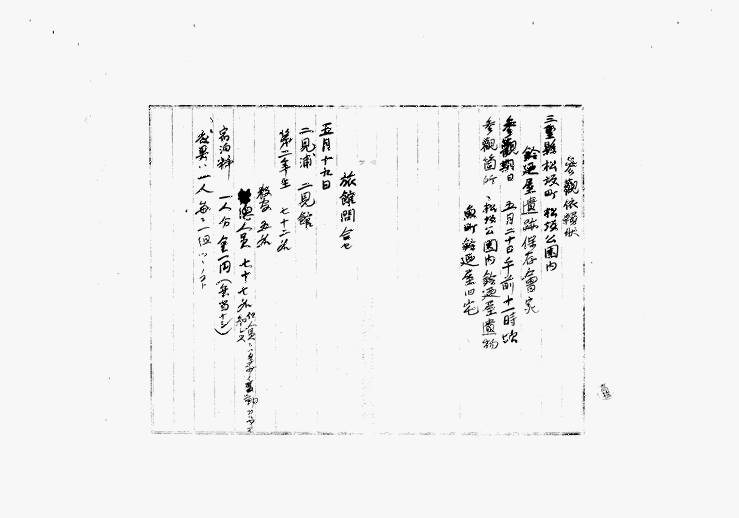 参觀依頼狀
三重縣松坂町松坂公園内
鈴廼屋遺跡保存會宛
参觀期日 五月二十日午前十一時頃
参觀箇所 松坂公園内鈴廼屋遺物
魚町鈴廼屋旧宅
旅館問合セ
五月十九日
二見浦 二見館
第二年生 七十二名
教官 五名
總人員 七十七名
宿泊料 一人分 金一円
夜具ハ 人毎ニ一組